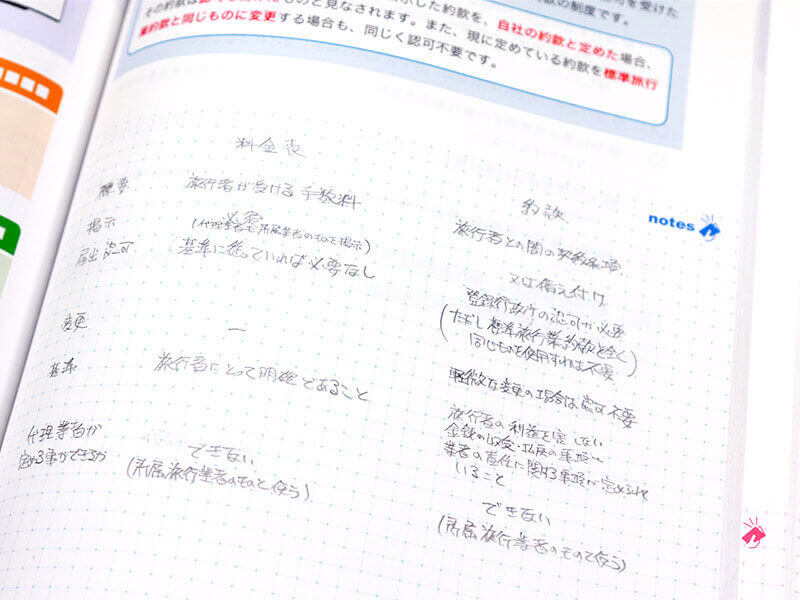 示した約款を、自社の約款と定めた場合、
業約款と同じものに変更する場合も、同じく認可不要です。
また、現に定めている約款を標準旅行
款の制度です。
料金表
約款
notes
概要
旅行者から受ける手数料
旅行者との間の契約条項
掲示
必要
(代理業者は所属業者のものを掲示)
又は備え付け
届出認可
基準に従っていれば必要なし
登録行政庁の認可が必要
(ただし標準旅行業約款と全く
同じものを使用すれば不要)
変更
ー
軽微な変更の場合は認可不要
基準
旅行者にとって明確であること
旅行者の利益を害しない
金銭の収受・払戻の事項と
業者の責任に関する事項が定められて
いること
代理業者が
定める事ができるか
できない
(所属旅行業者のものを使う)
できない
(所属旅行業者のものを使う)